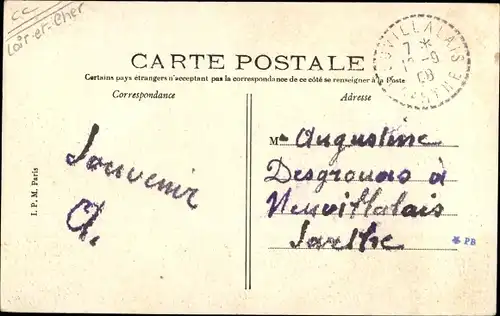 CC
Loir-et-Cher
CARTE POSTALE
Certains pays étrangers n'acceptant pas la correspondance de ce côté se renseigner à la Poste
Correspondance
Adresse
VILLALAIS
7 *
-9
08
SARTHE
Souvenir
A.
I. P. M. Paris
M Augustine
Desgrouas à
Neuvillalais
Sarthe
* PB